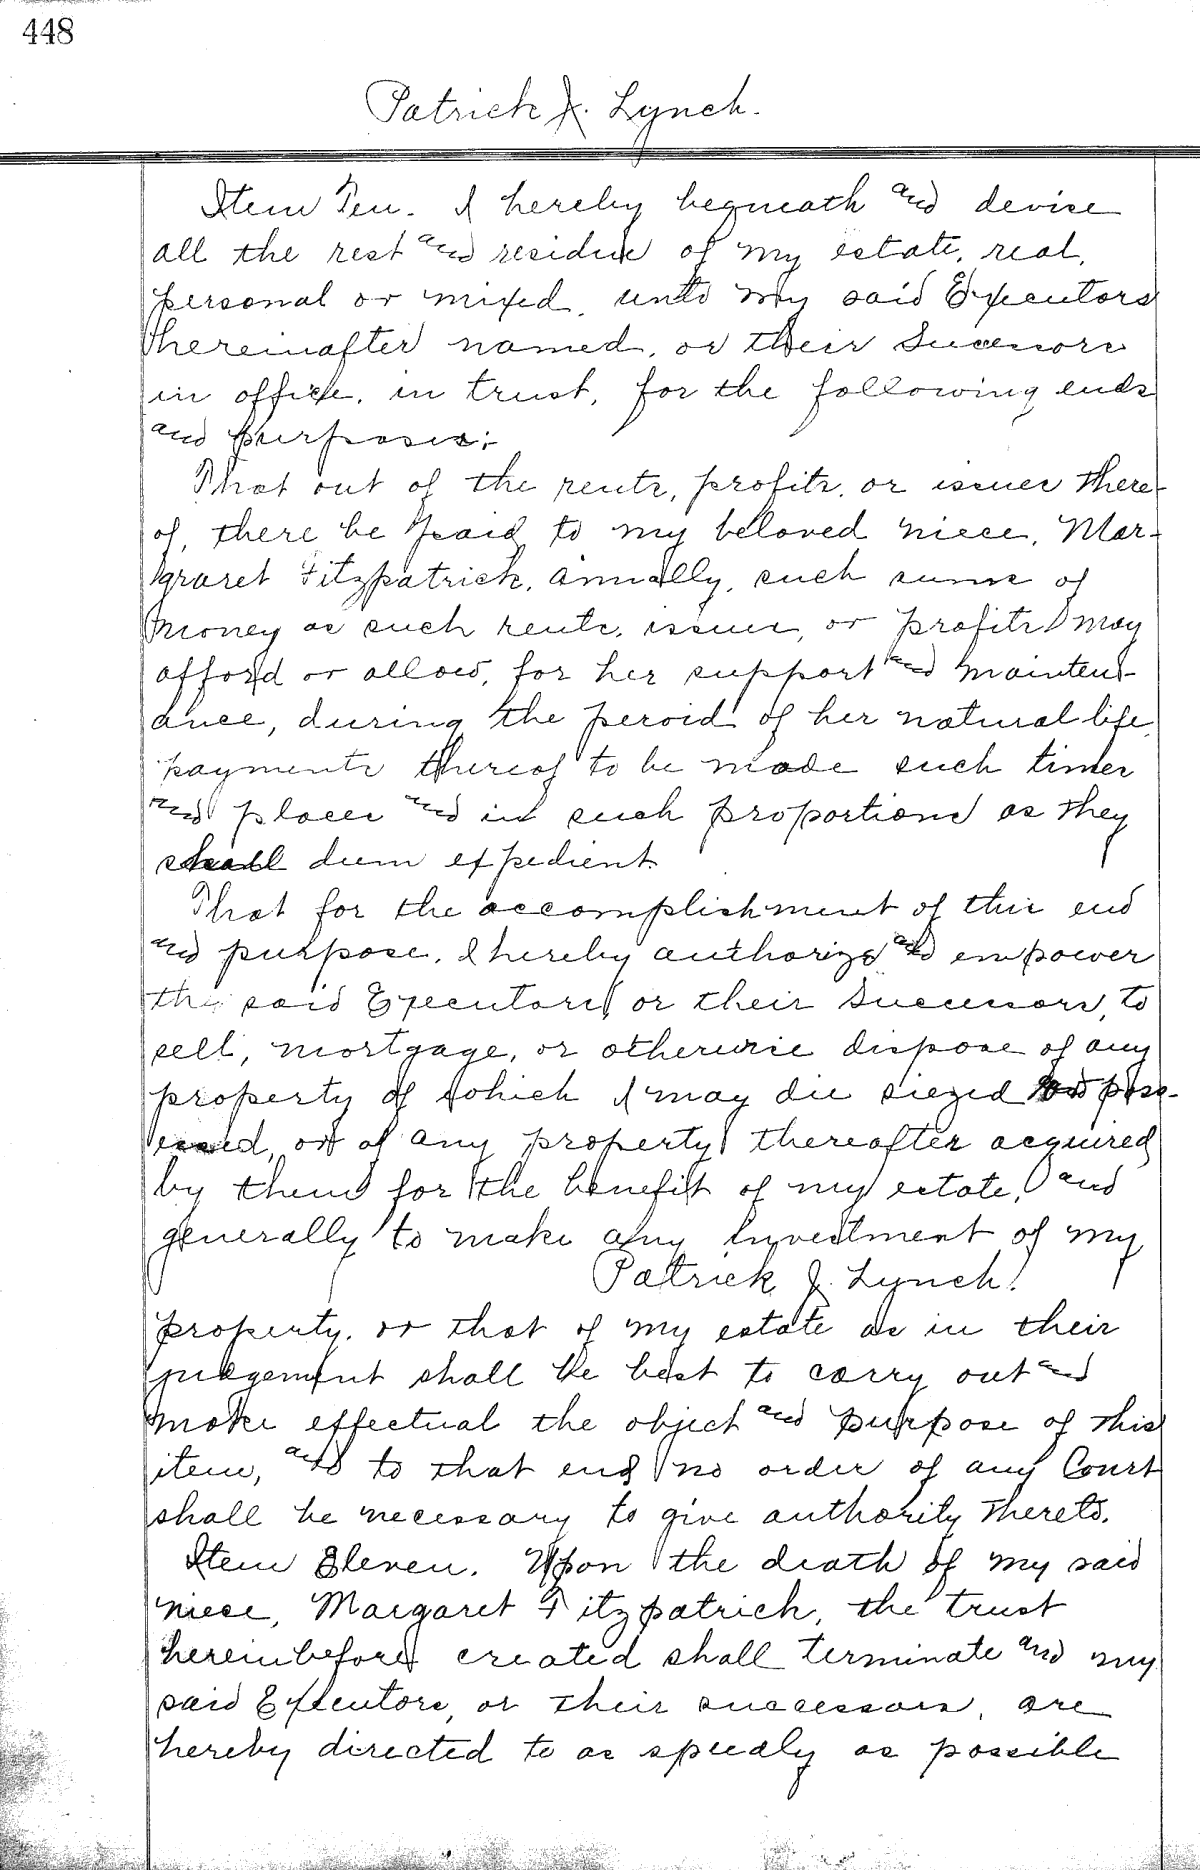 448
Patrick J. Lynch.
Item Ten. I hereby bequeath and devise
all the rest and residue of my estate, real,
personal or mixed, unto my said Executors
hereinafter named, or their Successors
in office, in trust, for the following ends
and purposes;
That out of the rents, profits, or issues there-
of, there be paid to my beloved niece, Mar-
graret Fitzpatrick, annually, such sums of
money as such rents, issues, or profits may
afford or allow, for her support and mainten-
ance, during the peroid of her natural life,
payments thereof to be made such times
and places and in such proportions as they
shall dum expedient.
That for the accomplishment of this end
and purpose, I hereby authorize and empower
the said Executors, or their Successors, to
sell, mortgage, or otherwise dispose of any
property of which I may die siezed and poss-
essed, or of any property thereafter acquired
by them for the benefit of my estate, and
generally to make any investment of my
Patrick J. Lynch.
property, or that of my estate as in their
judgement shall be best to carry out and
make effectual the object and purpose of this
item, and to that end no order of any Court
shall be necessary to give authority thereto.
Item Eleven. Upon the death of my said
niece, Margaret Fitzpatrick, the trust
hereinbefore created shall terminate and my
said Executors, or their successors, are
hereby directed to as speedly as possible